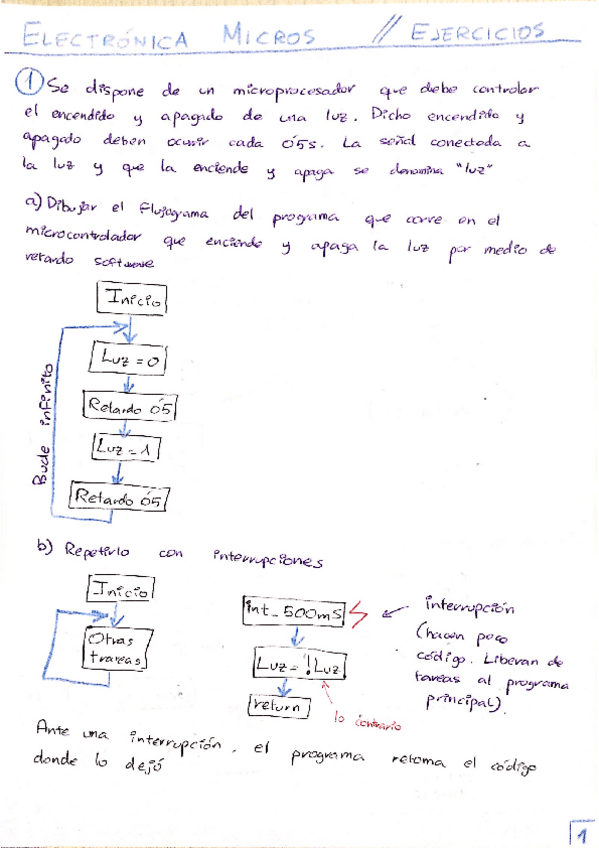 ELECTRÓNICA MICROS // EJERCICIOS
1 Se dispone de un microprocesador que debe controlar
el encendido y apagado de una luz. Dicho encendido y
apagado deben ocurrir cada 0'5s. La señal conectada a
la luz y que la enciende y apaga se denomina "luz"
a) Dibujar el flujograma del programa que corre en el
microcontrolador que enciende y apaga la luz por medio de
retardo software
Inicio
Luz = 0
Retardo 0'5
Luz = 1
Retardo 0'5
Bucle infinito
b) Repetirlo con interrupciones
Inicio
Otras
tareas
int_500ms
Luz = !Luz
return
lo contrario
interrupción
(hacen poco
código. Liberan de
tareas al programa
principal).
Ante una interrupción, el programa retoma el código
donde lo dejó
1